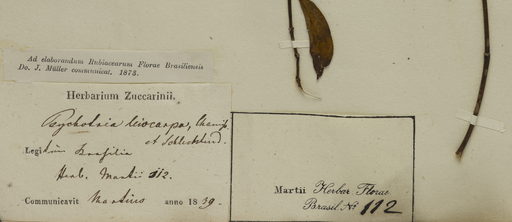 Ad elaborandum Rubiacearum Florae Brasiliensis
Do. J. Müller communicat. 1873.
Herbarium Zuccarinii.
Psychotria leiocarpa, Chamiss
et Schlechtend.
Legit in Brasilia
Herb. Martii 112.
Communicavit Martius anno 1839.
Martii Herbar. Florae
Brasil. No 112